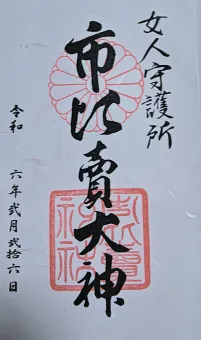 女人守護所
市比賣大神
令和六年弐月弐拾六日